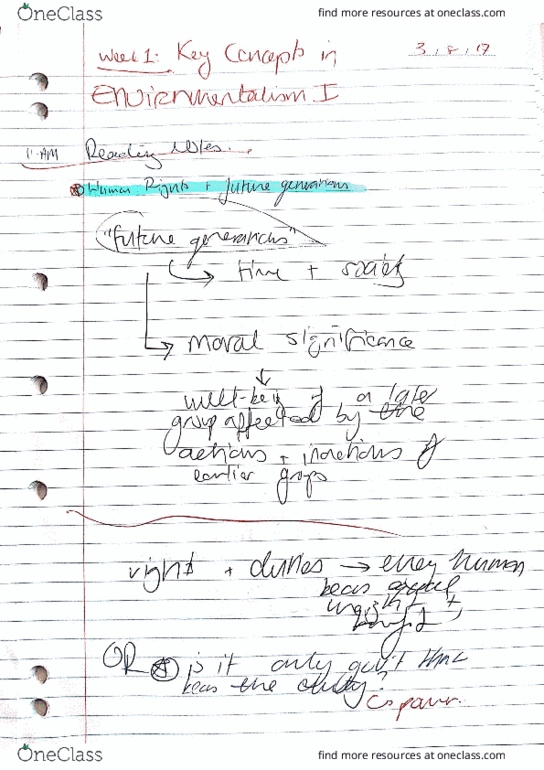 OneClass
find more resources at oneclass.com
Week 1: Key Concepts in
3.8.17
Environmentalism I
11 AM
Reading Notes
Human Rights + future generations
"future generations"
time + society
moral significance
well-being of a later
group affected by the
actions + inactions of
earlier groups
right + duties → every human
bears equal
OR is it only gov't
bears the duty?
OneClass
find more resources at oneclass.com